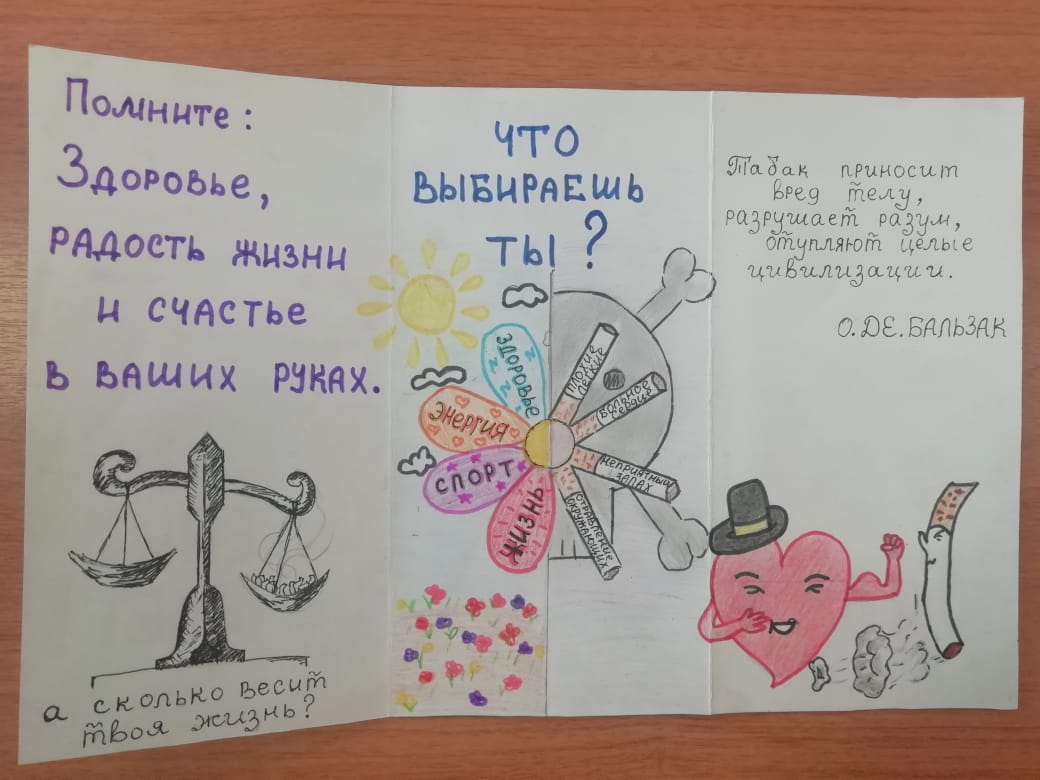 Помните:
Здоровье,
радость жизни
и счастье
в ваших руках.
а сколько весит
твоя жизнь?
ЧТО
ВЫБИРАЕШЬ
ТЫ?
ЗДОРОВЬЕ
ЭНЕРГИЯ
СПОРТ
ЖИЗНЬ
ПЛОХИЕ
ЛЕГКИЕ
БОЛЬНОЕ
СЕРДЦЕ
НЕПРИЯТНЫЙ
ЗАПАХ
ОТРАВЛЕНИЕ
ОКРУЖАЮЩИХ
Табак приносит
вред телу,
разрушает разум,
отупляют целые
цивилизации.
О. ДЕ. БАЛЬЗАК